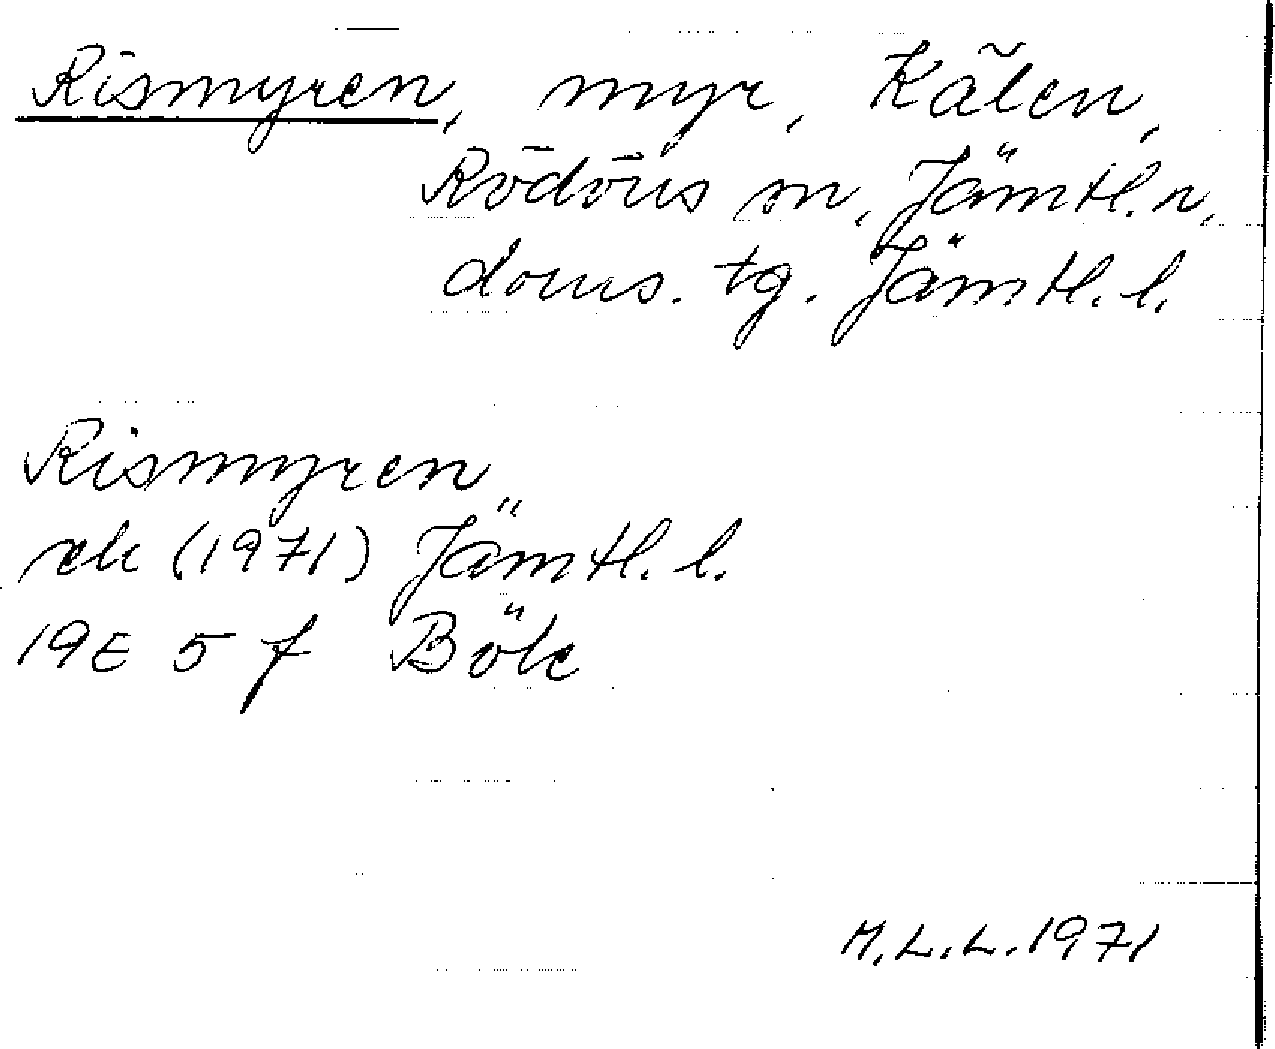 Rismyren, myr, Kälen,
Rödöns sn, Jämtl. n.
doms. tg. Jämtl. l.
Rismyren
rek (1971) Jämtl. l.
19E 5 f Böle
M.L.L. 1971